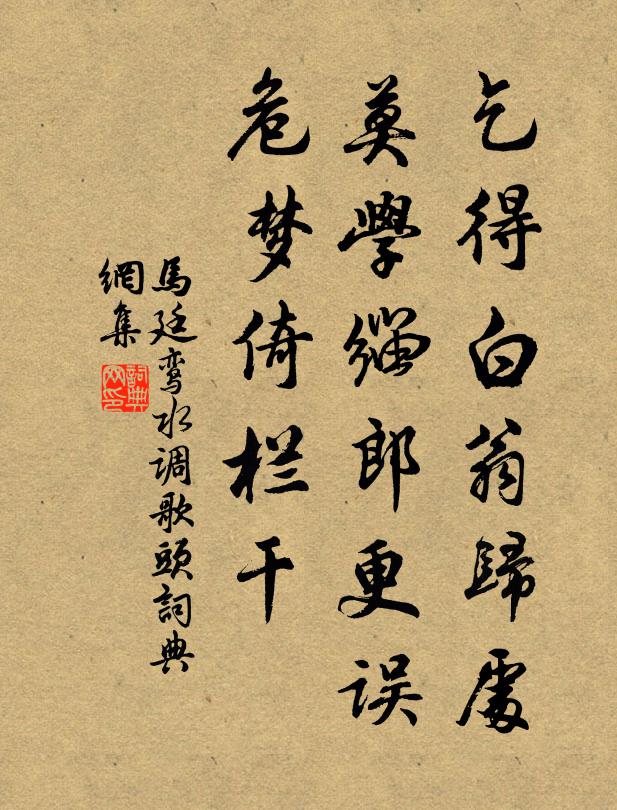 乞得白翁歸處
莫學繦郎更误
危梦倚栏干
馬廷鸾水调歌頭詞典
網集
詞典
网印